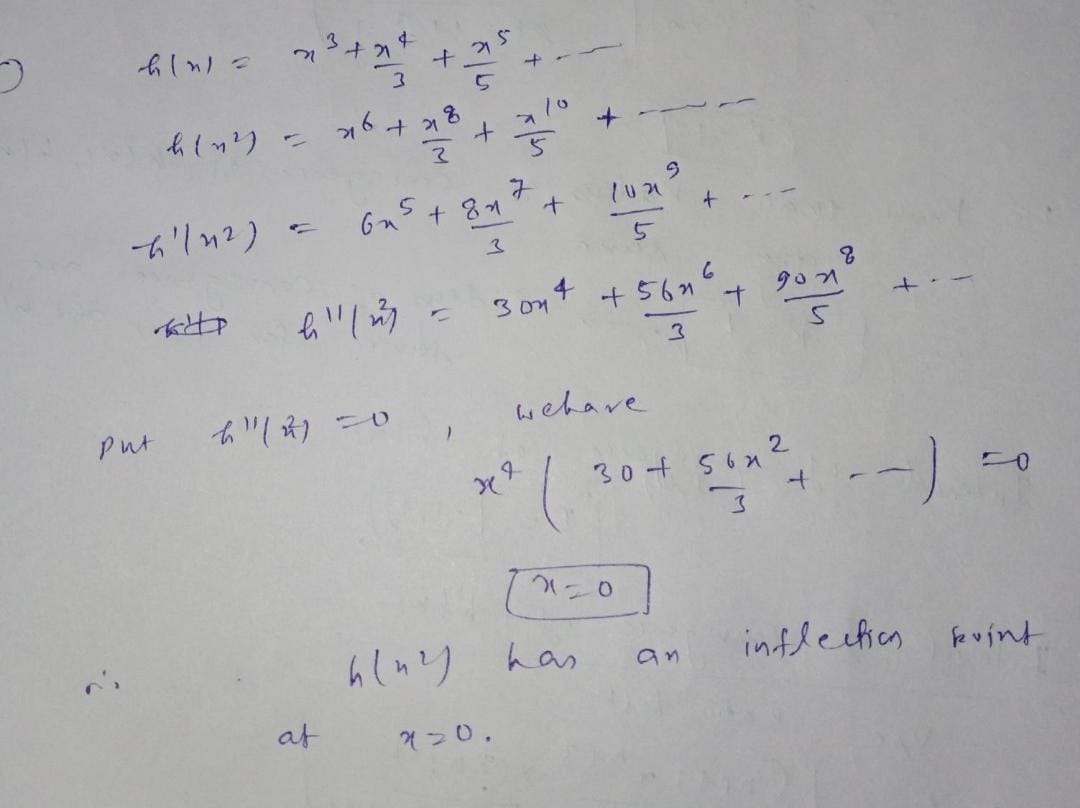 h(x) = x³ + x⁴/3 + x⁵/5 + ---
h(x²) = x⁶ + x⁸/3 + x¹⁰/5 + ---
h'(x²) = 6x⁵ + 8x⁷/3 + 10x⁹/5 + ---
h''(x²) = 30x⁴ + 56x⁶/3 + 90x⁸/5 + ---
put h''(x²) = 0, we have
x⁴ ( 30 + 56x²/3 + --- ) = 0
x = 0
h(x²) has an inflection point
at x = 0.